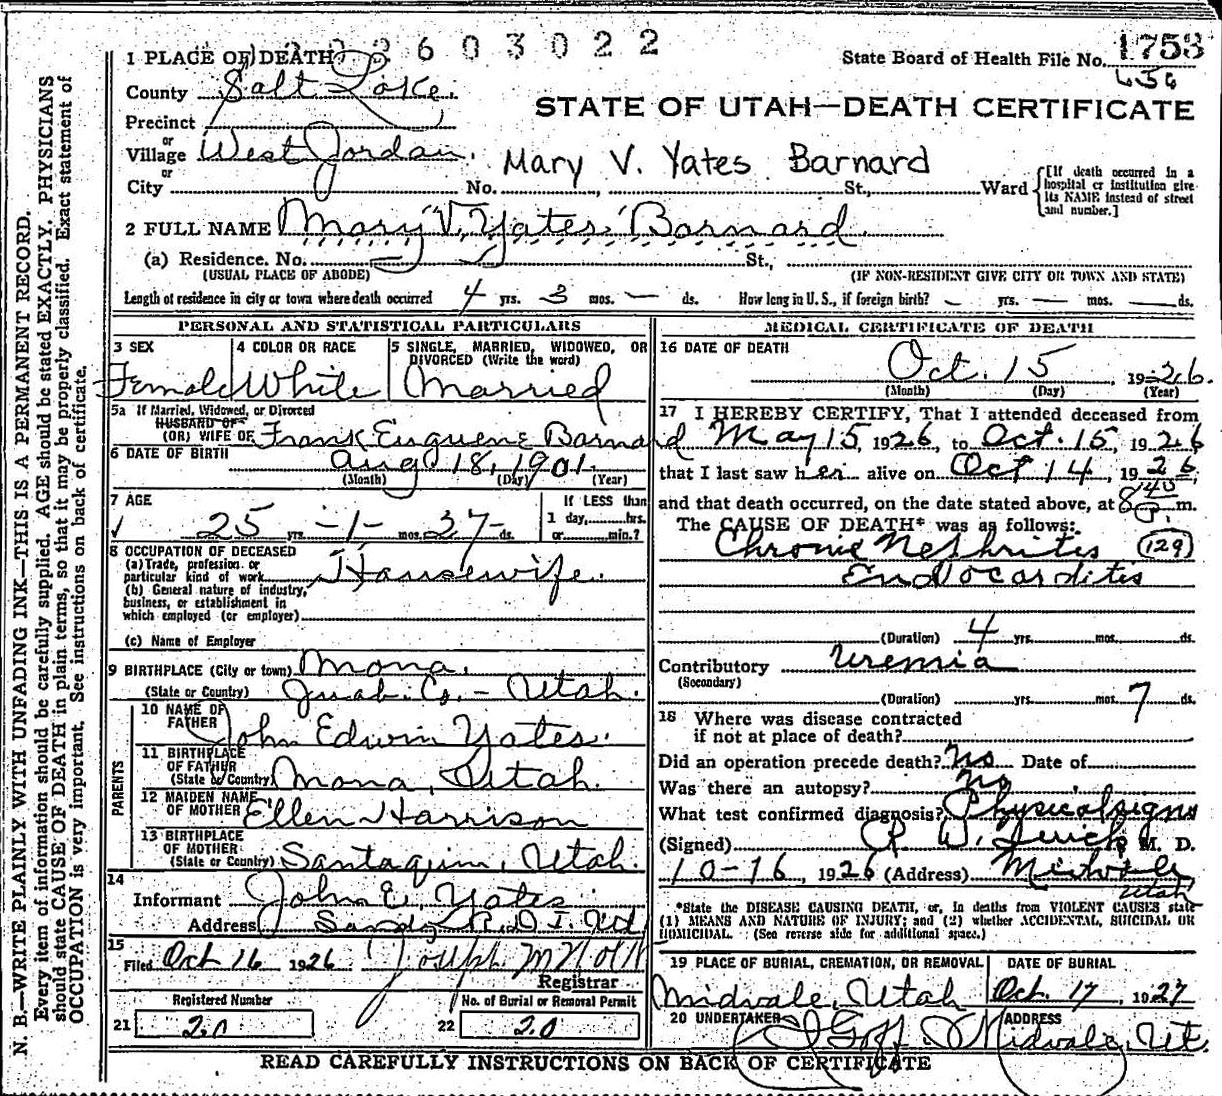 2603022
State Board of Health File No. 1753
1 PLACE OF DEATH
County Salt Lake.
STATE OF UTAH—DEATH CERTIFICATE
Precinct
or
Village West Jordan.
or
Mary V. Yates Barnard
City No. St., Ward
[If death occurred in a hospital or institution give its NAME instead of street and number.]
2 FULL NAME Mary V. Yates Barnard
(a) Residence. No. St.,
(USUAL PLACE OF ABODE) (IF NON-RESIDENT GIVE CITY OR TOWN AND STATE)
Length of residence in city or town where death occurred 4 yrs. 3 mos. — ds. How long in U. S., if foreign birth? — yrs. — mos. — ds.
PERSONAL AND STATISTICAL PARTICULARS
3 SEX
Female
4 COLOR OR RACE
White
5 SINGLE, MARRIED, WIDOWED, OR DIVORCED (Write the word)
Married
5a If Married, Widowed, or Divorced
HUSBAND OF
(OR) WIFE OF Frank Euguene Barnard
6 DATE OF BIRTH Aug 18, 1901.
(Month) (Day) (Year)
7 AGE
25 yrs. -1- mos. 27- ds.
If LESS than
1 day, hrs.
or min.?
8 OCCUPATION OF DECEASED
(a) Trade, profession or
particular kind of work Housewife.
(b) General nature of industry,
business, or establishment in
which employed (or employer)
(c) Name of Employer
9 BIRTHPLACE (City or town) Mona,
(State or Country) Juab. Co. - Utah.
PARENTS
10 NAME OF
FATHER John Edwin Yates.
11 BIRTHPLACE
OF FATHER
(State or Country) Mona, Utah.
12 MAIDEN NAME
OF MOTHER Ellen Harrison
13 BIRTHPLACE
OF MOTHER
(State or Country) Santaquin, Utah.
14
Informant John E. Yates
Address Sandy R. D 1. Ut
15
Filed Oct 16 1926 Joseph M Holt
Registrar
Registered Number
21 20
No. of Burial or Removal Permit
22 20
MEDICAL CERTIFICATE OF DEATH
16 DATE OF DEATH
Oct. 15, 1926.
(Month) (Day) (Year)
17 I HEREBY CERTIFY, That I attended deceased from
May 15, 1926, to Oct. 15, 1926
that I last saw her alive on Oct 14, 1926,
and that death occurred, on the date stated above, at 8 40 P. m.
The CAUSE OF DEATH* was as follows:
Chronic Nephritis (129)
Endocarditis
(Duration) 4 yrs. mos. ds.
Contributory Uremia
(Secondary)
(Duration) yrs. mos. 7 ds.
18 Where was disease contracted
if not at place of death?
Did an operation precede death? No Date of
Was there an autopsy? no
What test confirmed diagnosis? Physical signs
(Signed) M. D.
10-16, 1926 (Address) Midvale
Utah
*State the DISEASE CAUSING DEATH, or, in deaths from VIOLENT CAUSES state
(1) MEANS AND NATURE OF INJURY; and (2) whether ACCIDENTAL, SUICIDAL OR
HOMICIDAL. (See reverse side for additional space.)
19 PLACE OF BURIAL, CREMATION, OR REMOVAL
Midvale, Utah
DATE OF BURIAL
Oct. 17, 1927
20 UNDERTAKER Goff
ADDRESS
Midvale, Ut.
READ CAREFULLY INSTRUCTIONS ON BACK OF CERTIFICATE
N. B.—WRITE PLAINLY WITH UNFADING INK—THIS IS A PERMANENT RECORD.
Every item of information should be carefully supplied. AGE should be stated EXACTLY. PHYSICIANS
should state CAUSE OF DEATH in plain terms, so that it may be properly classified. Exact statement of
OCCUPATION is very important. See instructions on back of certificate.